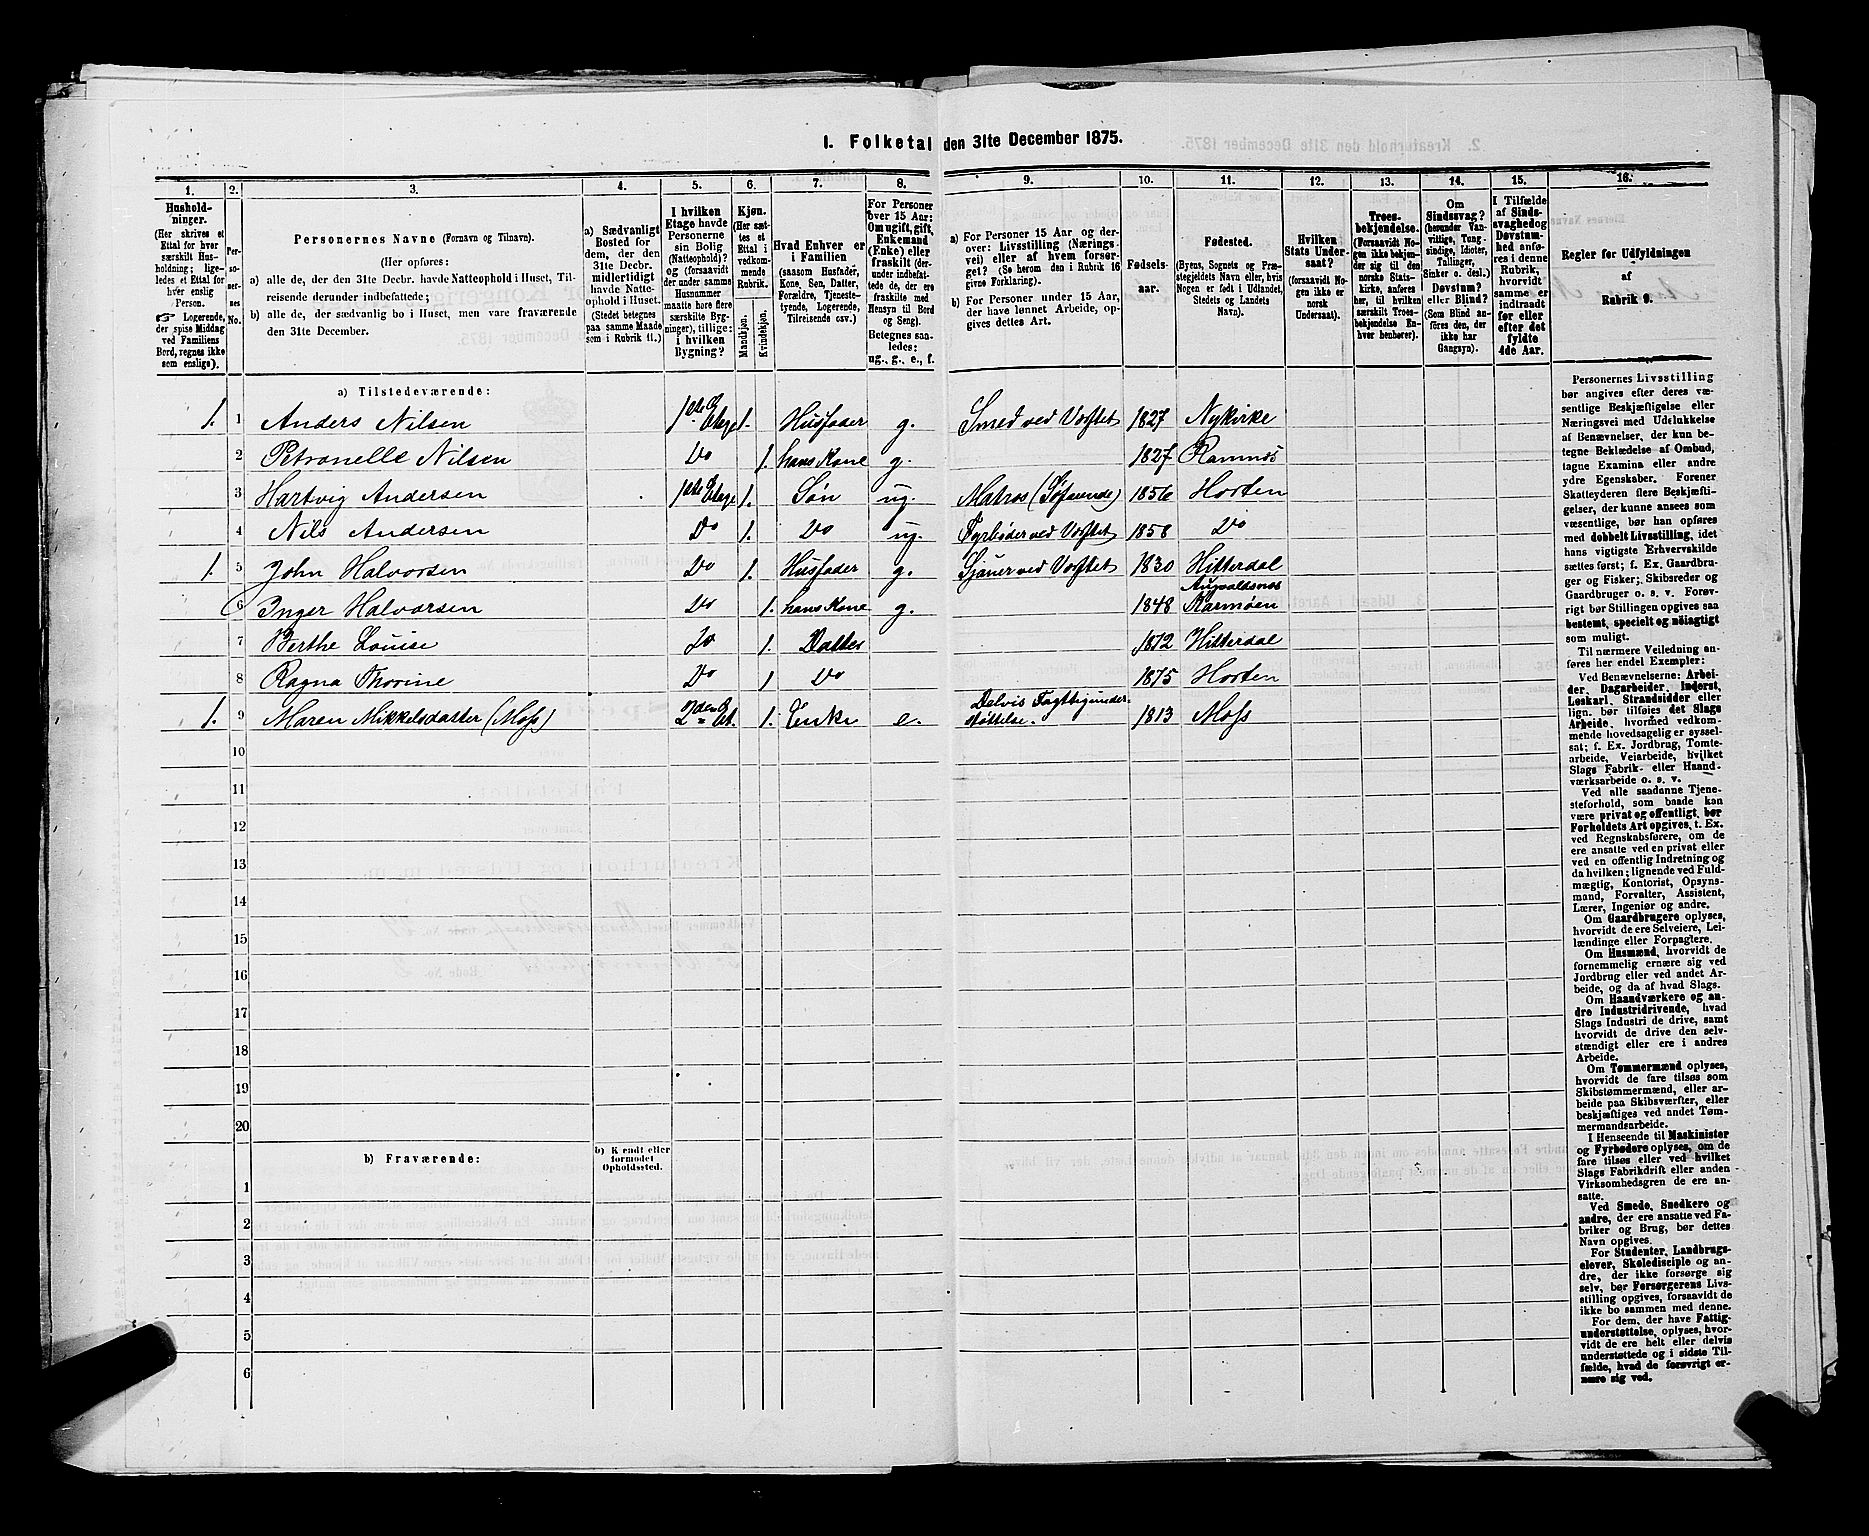 1. Folketal den 31te December 1875.
1. 2. 3. 4. 5. 6. 7. 8. 9. 10. 11. 12. 13. 14. 15. 16.
Hushold-
ninger.
(Her skrives et
Ettal for hver
særskilt Hus-
holdning; lige-
ledes et Ettal for
hver enslig
Person.
☞ Logerende,
der spise Middag
ved Familiens
Bord, regnes ikke
som enslige).
Per-
so-
ner-
nes
No.
Personernes Navne (Fornavn og Tilnavn).
(Her opføres:
a) alle de, der den 31te Decbr. havde Natteophold i Huset, Til-
reisende derunder indbefattede;
b) alle de, der sædvanlig bo i Huset, men vare fraværende
den 31te December.
a) Sædvanligt
Bosted for
dem, der den
31te Decbr.
midlertidigt
havde Natte-
ophold i Huset.
(Stedet betegnes
paa samme Maade
som i Rubrik 11.)
I hvilken
Etage havde
Personerne
sin Bolig
(Natteophold)?
og (forsaavidt
der under samme
Husnummer
maatte høre flere
særskilte Byg-
ninger), tillige:
i hvilken
Bygning?
Kjøn.
(Her sæt-
tes et
Ettal i
vedkom-
mende
Rubrik.
Mandkjøn.
Kvindekjøn.
Hvad Enhver er
i Familien
(saasom Husfader,
Kone, Søn, Datter,
Forældre, Tjeneste-
tyende, Logerende,
Tilreisende csv.)
For Personer
over 15 Aar:
Om ugift, gift,
Enkemand
(Enke) eller
fraskilt (der-
under indbefat-
tede de, der ere
fraskilte med
Hensyn til Bord
og Seng).
Betegnes saa-
ledes:
ug., g., e., f.
a) For Personer 15 Aar og der-
over: Livsstilling (Nærings-
vei) eller af hvem forsør-
get? (Se herom den i Rubrik 16
givne Forklaring).
b) For Personer under 15 Aar,
der have lønnet Arbeide, op-
gives dettes Art.
Fødsels-
aar.
Fødested.
(Byens, Sognets og Præ-
stegjeldets Navn eller, hvis
Nogen er født i Udlandet,
Stedets og Landets
Navn).
Hvilken
Stats Under-
saat?
(forsaavidt No-
gen ikke er
norsk
Undersaat).
Troes-
bekjendelse.
(Forsaavidt No-
gen ikke bekjen-
der sig til den
norske Stats-
kirke, anføres
her, til hvilket
særskilt Troes-
bekjendelse En-
hver henhører).
Om
Sindssvag?
(herunder Van-
vittige, Tung-
sindige, Idioter,
Tullinger,
Sinker o. desl.)
Døvstum?
eller Blind?
(Som Blind an-
føres den, der
ikke har
Gangsyn).
I Tilfælde
af Sinds-
svaghed og
Døvstum-
hed anfø-
res i denne
Rubrik,
hvorvidt
samme er
indtraadt
før eller
efter det
fyldte
4de Aar.
Regler før Udfyldningen
af
Rubrik 9.
a) Tilstedeværende:
1. 1 Anders Nilsen 1ste Etage 1. Husfader g. Smed ved Værftet 1827 Nykirke
2 Petronelle Nilsen Do 1. hans Kone g. 1827 Ramnæs
3 Hartvig Andersen 1ste Etage 1. Søn ug. Matros (Søfarende) 1856 Horten
4 Nils Andersen Do 1. Do ug. Fyrbøder ved Værftet 1858 Do
1. 5 John Halvorsen Do 1. Husfader g. Sjauer ved Værftet 1830 Hitterdal
6 Inger Halvorsen Do 1. hans Kone g. 1848 Augvaldsnæs Karmøen
7 Berthe Louise Do 1. Datter 1872 Hitterdal
8 Ragna Thorine Do 1 Do 1875 Horten
1. 9 Maren Mikkelsdatter (Moss) 2den Et. 1. Enke e. Delvis Fattigunder-
støttelse. 1813 Moss
10
11
12
13
14
15
16
17
18
19
20
b) Fraværende:
b) Kjendt eller
formodet
Opholdssted.
1
2
3
4
5
6
Personernes Livsstilling
bør angives efter deres væ-
sentlige Beskjæftigelse eller
Næringsvei med Udelukkelse
af Benævnelser, der kun be-
tegne Beklædelse af Ombud,
tagne Examina eller andre
ydre Egenskaber. Forener
Skatteyderen flere Beskjæfti-
gelser, der kunne ansees som
væsentlige, bør han opføres
med dobbelt Livsstilling, idet
hans vigtigste Erhvervskilde
sættes først; f. Ex. Gaardbru-
ger og Fisker; Skibsreder og
Gaardbruger o. s. v. Forøv-
rigt bør Stillingen opgives saa
bestemt, specielt og nöiagtigt
som muligt.
Til nærmere Veiledning an-
føres her endel Exempler:
Ved Benævnelserne: Arbei-
der, Dagarbeider, Inderst,
Løskarl, Strandsidder eller
lign. bør tilføies det Slags
Arbeide, hvormed vedkom-
mende hovedsagelig er syssel-
sat; f. Ex. Jordbrug, Tomte-
arbeide, Veiarbeide, hvilket
Slags Fabrik- eller Haand-
værksarbeide o. s. v.
Ved alle saadanne Tjene-
steforhold, som baade kan
være privat og offentligt, bør
Forholdets Art opgives, t. Ex.
ved Regnskabsførere, om de
ere ansatte ved en privat eller
ved en offentlig Indretning og
da hvilken; lignende ved Fuld-
mægtig, Kontorist, Opsyns-
mand, Forvalter, Assistent,
Lærer, Ingeniør og andre.
Om Gaardbrugere oplyses,
hvorvidt de ere Selveiere, Lei-
lændinge eller Forpagtere.
Om Husmænd, hvorvidt de
fornemmelig ernære sig ved
Jordbrug eller ved andet Ar-
beide, og da af hvad Slags.
Om Haandværkere og an-
dre Industridrivende, hvad
Slags Industri de drive, samt
hvorvidt de drive den selv-
stændigt eller ere i andres
Arbeide.
Om Tømmermænd oplyses,
hvorvidt de fare tilsøs som
Skibstømmermænd, eller ar-
beide paa Skibsværfter, eller
beskjæftiges ved andet Tøm-
mermandsarbeide.
I Henseende til Maskinister
og Fyrbødere oplyses, om de
fare tilsøs eller ved hvilket
Slags Fabrikdrift eller anden
Virksomhedsgren de ere an-
satte.
Ved Smede, Snedkere og
andre, der ere ansatte ved Fa-
briker og Brug, bør dettes
Navn opgives.
For Studenter, Landbrugs-
elever, Skoledisciple og an-
dre, der ikke forsørge sig
selv, bør Forsørgerens Livs-
stilling opgives, forsaavidt de
ikke bo sammen med denne.
For dem, der have Fattig-
understøttelse, oplyses, hvor-
vidt de ere helt eller delvis
understøttede og i sidste Til-
fælde, hvad de forøvrigt er-
nære sig ved.